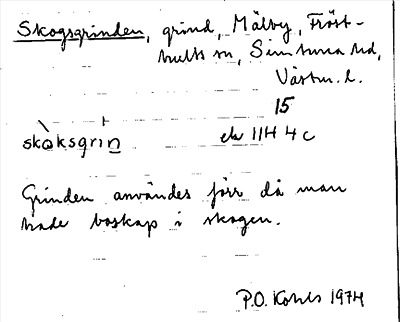 Skogsgrinden, grind, Mälby, Fröst-
hults sn, Simtuna hd,
Västm. l.
15
skòksgrin ek 11H 4c
Grinden användes förr då man
hade boskap i skogen.
P.O. Kohls 1974